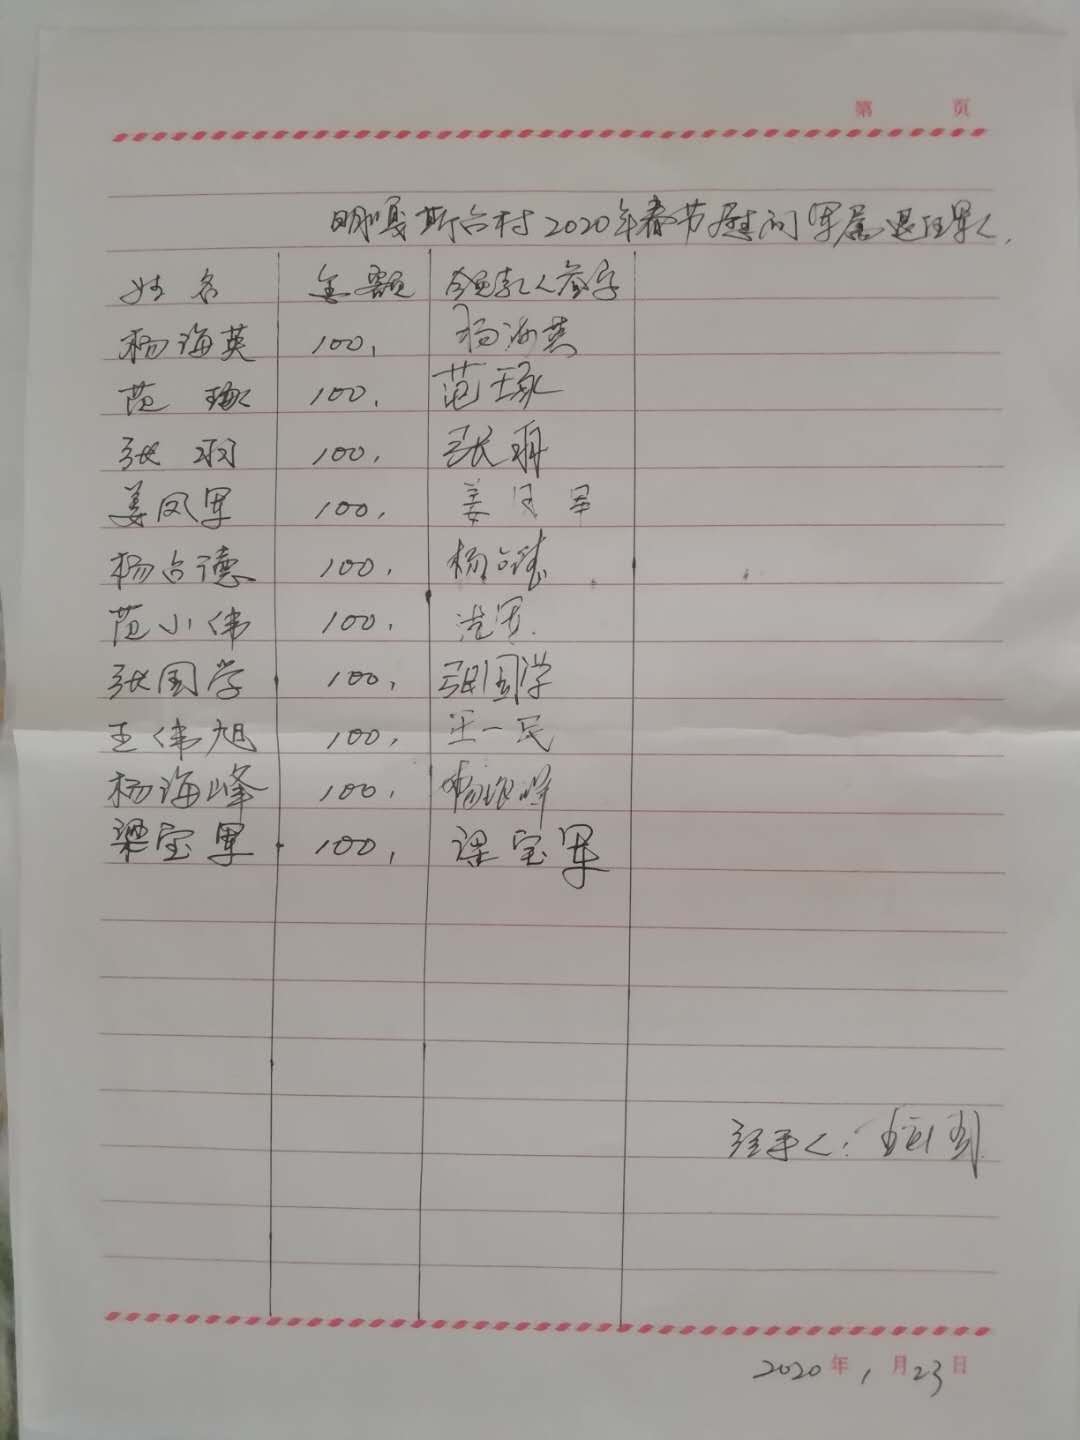 第 页
明嘎斯台村2020年春节慰问军属退伍军人.
姓名 金额 领款人签字
杨海英 100. 杨海英
范琢 100. 范琢
张羽 100. 张羽
姜凤军 100. 姜凤军
杨占德 100. 杨占德
范小伟 100.
张国学 100. 张国学
王伟旭 100. 王一民
杨海峰 100. 杨海峰
梁宝军 100. 梁宝军
经手人:
2020年1月23日